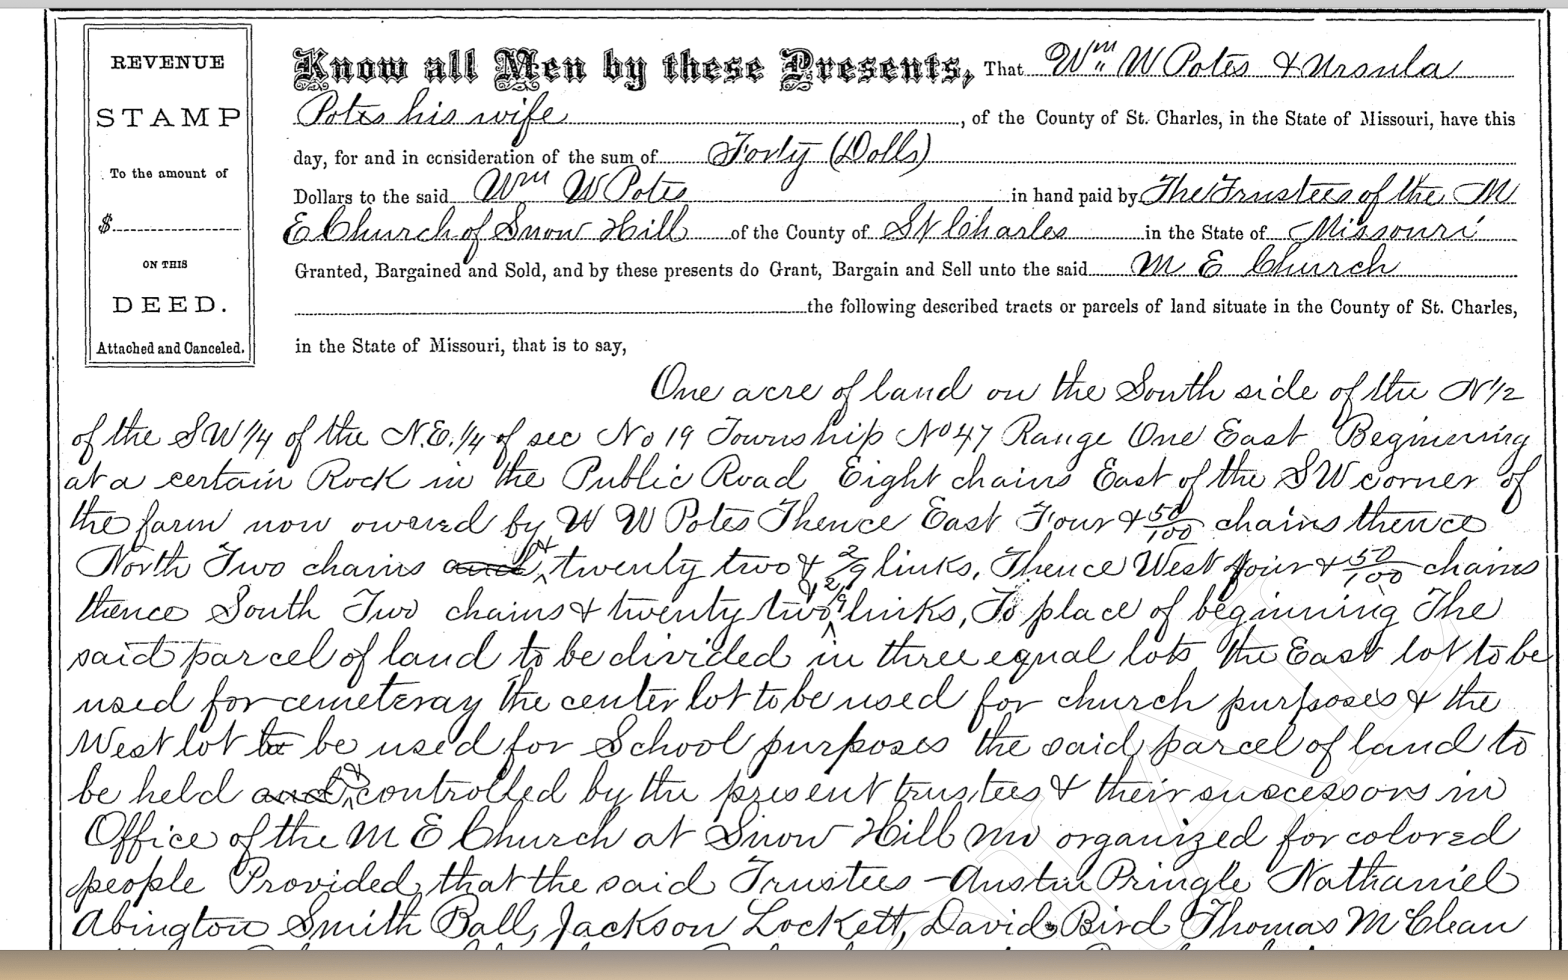 REVENUE
STAMP
To the amount of
$
ON THIS
DEED.
Attached and Canceled.
Know all Men by these Presents, That Wm W Potes & Ursula
Potes his wife, of the County of St. Charles, in the State of Missouri, have this
day, for and in consideration of the sum of Forty (Dolls)
Dollars to the said Wm W Potes in hand paid by The Trustees of the M
E Church of Snow Hill of the County of St Charles in the State of Missouri
Granted, Bargained and Sold, and by these presents do Grant, Bargain and Sell unto the said M E Church
the following described tracts or parcels of land situate in the County of St. Charles,
in the State of Missouri, that is to say,
One acre of land on the South side of the N 1/2
of the SW 1/4 of the N.E. 1/4 of sec No 19 Township No 47 Range One East Beginning
at a certain Rock in the Public Road Eight chains East of the SW corner of
the farm now owned by W W Potes Thence East Four & 50/100 chains thence
North Two chains and & twenty two & 2/9 links, Thence West four & 50/100 chains
thence South Two chains & twenty two & 2/9 links, To place of beginning The
said parcel of land to be divided in three equal lots the East lot to be
used for cemeteray the center lot to be used for church purposes & the
West lot to be used for School purposes the said parcel of land to
be held and & controlled by the present trustees & their successors in
Office of the M E Church at Snow Hill Mo organized for colored
people Provided, that the said Trustees - Austin Pringle Nathaniel
Abington Smith Ball, Jackson Lockett, David Bird Thomas McClean